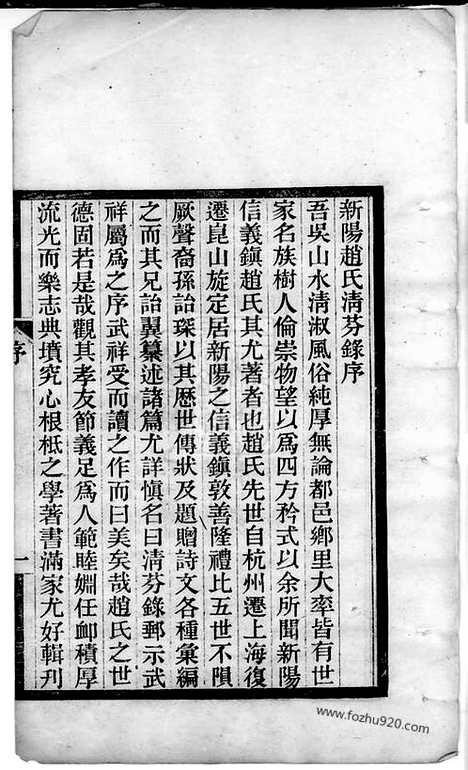 新陽趙氏清芬錄序
吾吳山水清淑風俗純厚無論都邑鄉里大率皆有世
家名族樹人倫崇物望以為四方矜式以余所聞新陽
信義鎮趙氏其尤著者也趙氏先世自杭州遷上海復
遷崑山旋定居新陽之信義鎮敦善隆禮比五世不隕
厥聲裔孫詒琛以其歷世傳狀及題贈詩文各種彙編
之而其兄詒翼纂述諸篇尤詳慎名曰清芬錄郵示武
祥屬為之序武祥受而讀之作而曰美矣哉趙氏之世
德固若是哉觀其孝友節義足為人範睦婣任卹積厚
流光而樂志典墳究心根柢之學著書滿家尤好輯刋
序
一
www.fozhu920.com